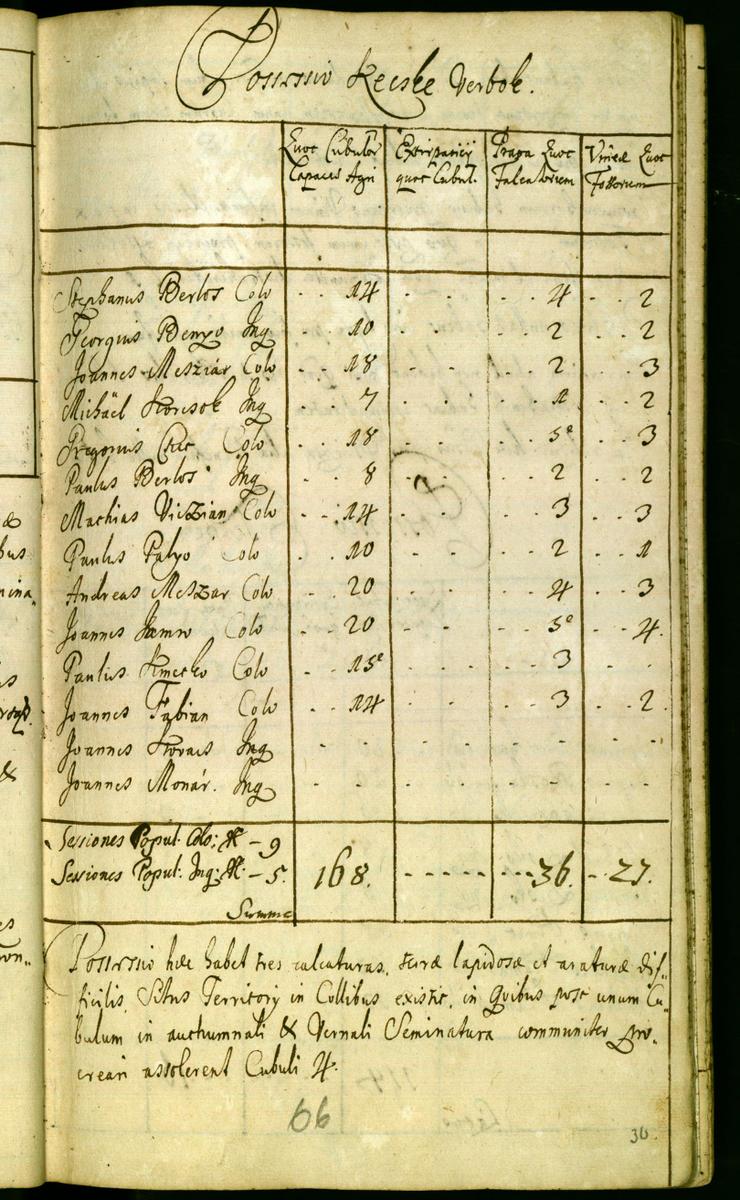 Possessio Kecske Verbok.
Quot Cubulor Capacis Agri
Exstirpaticii quot Cubul.
Prata Quot Falcatorum
Vineæ Quot Fossorum
Stephanus Berlos Colo . . 14 . . . . 4 . . 2
Georgius Benyo Inq . . 10 . . . . 2 . . 2
Joannes Mesziar Colo . . 18 . . . . 2 . . 3
Michäel Inq . . 7 . . . . 1 . . 2
Gregorius Colo . . 18 . . . . 5 . . 3
Paulus Berlos Inq . . 8 . . . . 2 . . 2
Mathias Viczian Colo . . 14 . . . . 3 . . 3
Paulus Palyo Colo . . 10 . . . . 2 . . 1
Andreas Meszar Colo . . 20 . . . . 4 . . 3
Joannes Colo . . 20 . . . . 5 . . 4.
Paulus Kmetko Colo . . 15 . . . . 3 . .
Joannes Fabian Colo . . 14 . . . . 3 . . 2
Joannes Kovacs Inq . . . . . . . .
Joannes Monár. Inq . . . . . . . .
Sessiones Popul: Colo: — 9
Sessiones Popul: Inq: — 5.
Summa 168. - - - - - - - - 36. - - 27.
Possessio hæc habet tres calcaturas, terræ lapidosæ et araturæ dif-
ficilis, Situs Territorÿ in Collibus existit, in Quibus post unum Cu-
bulum in authumnali & Vernali Seminatura communiter pro-
creari assolerent Cubuli 4.
66
36